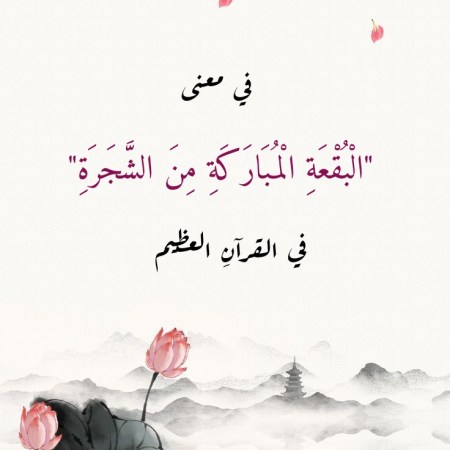 في معنى
"الْبُقْعَةِ الْمُبَارَكَةِ مِنَ الشَّجَرَةِ"
في القرآنِ العظيم